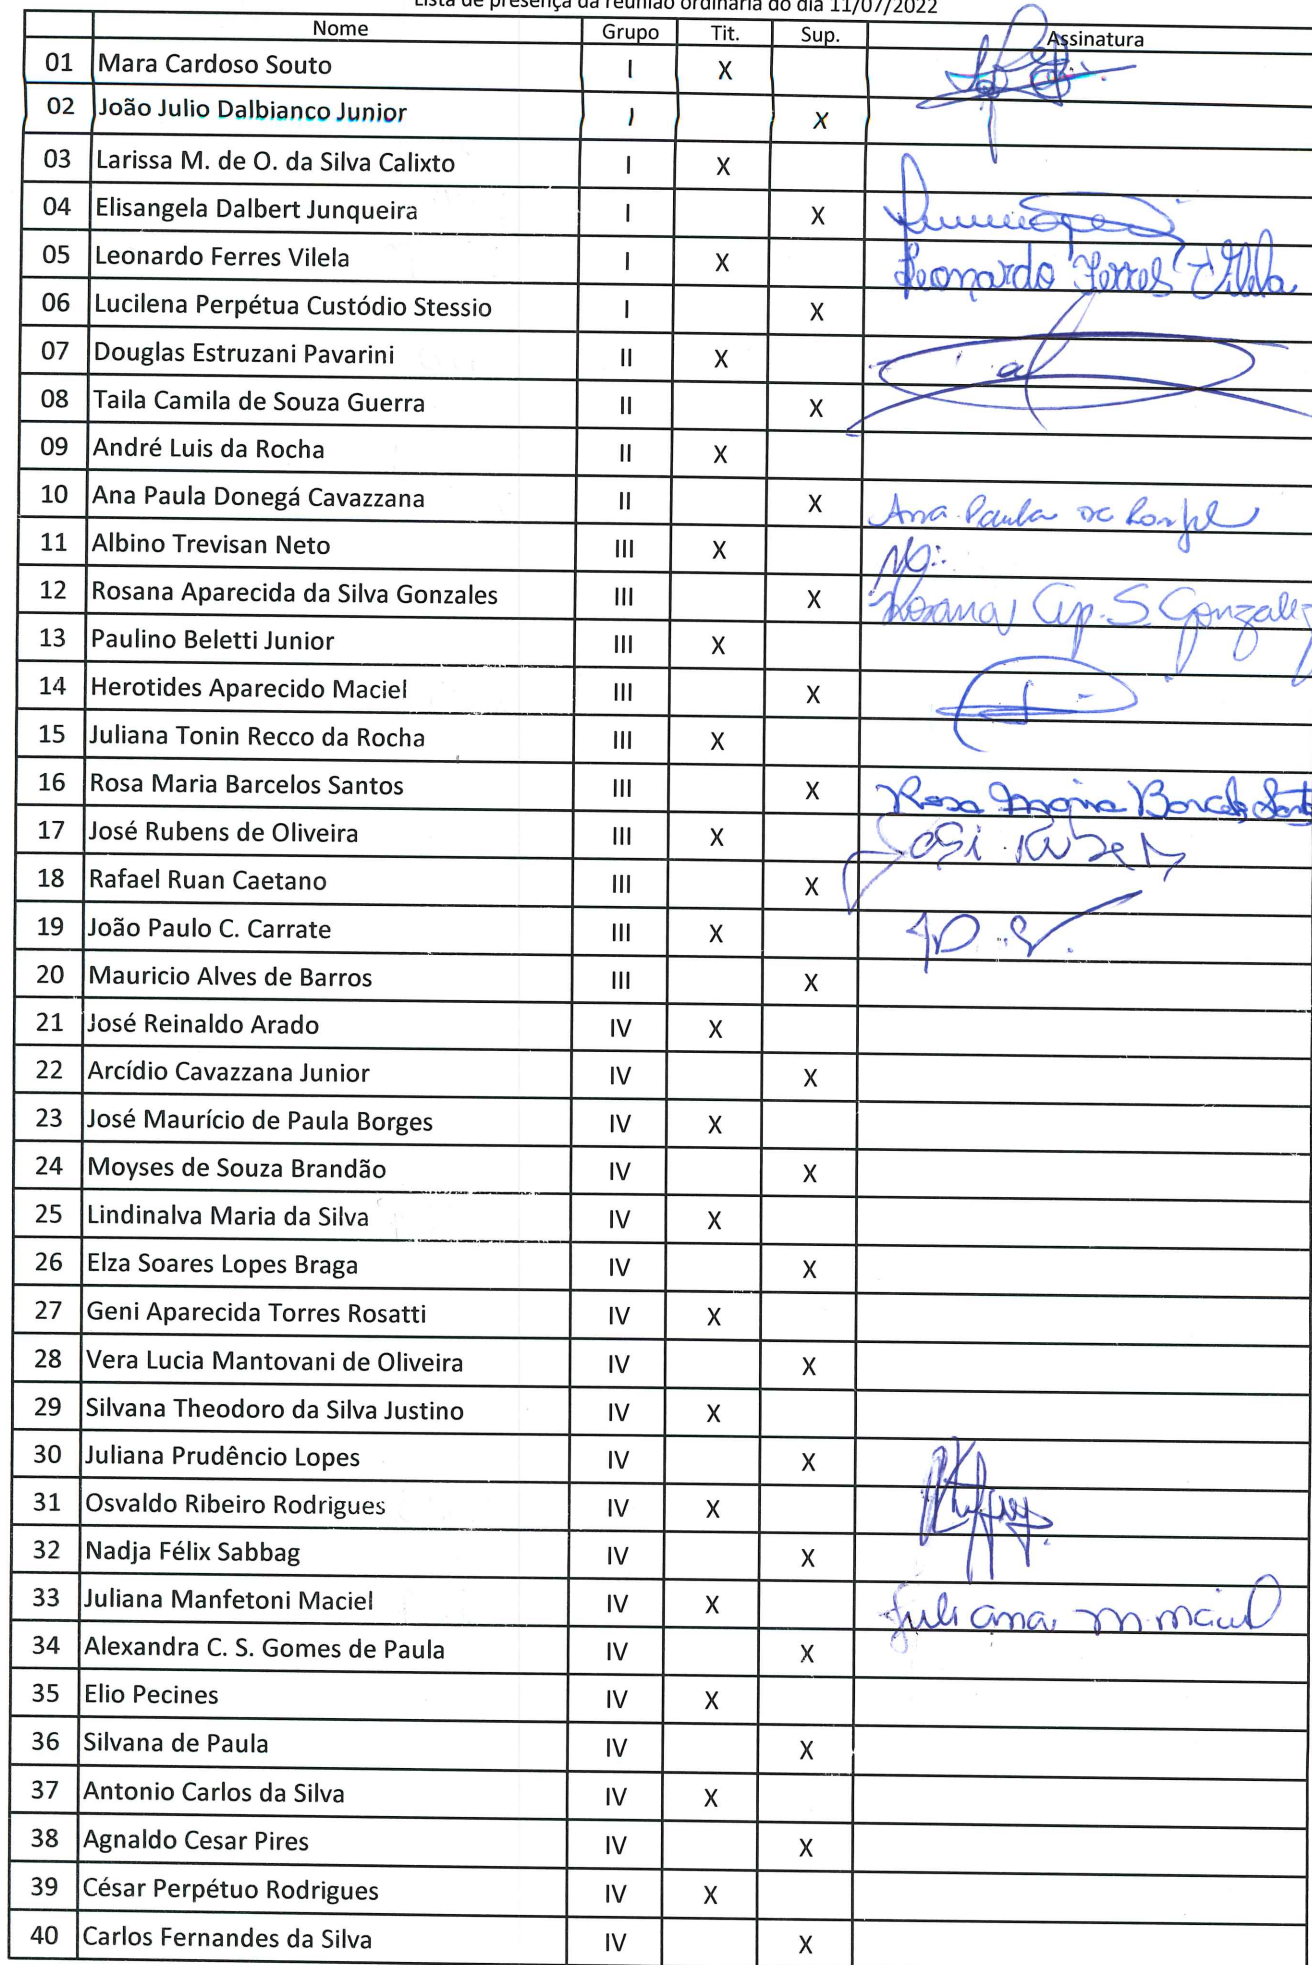 Lista de presença da reunião ordinária do dia 11/07/2022
Nome Grupo Tit. Sup. Assinatura
01 Mara Cardoso Souto I X
02 João Julio Dalbianco Junior I X
03 Larissa M. de O. da Silva Calixto I X
04 Elisangela Dalbert Junqueira I X
05 Leonardo Ferres Vilela I X Leonardo Ferres Vilela
06 Lucilena Perpétua Custódio Stessio I X
07 Douglas Estruzani Pavarini II X
08 Taila Camila de Souza Guerra II X
09 André Luis da Rocha II X
10 Ana Paula Donegá Cavazzana II X Ana Paula
11 Albino Trevisan Neto III X
12 Rosana Aparecida da Silva Gonzales III X Rosana Ap. S. Gonzales
13 Paulino Beletti Junior III X
14 Herotides Aparecido Maciel III X
15 Juliana Tonin Recco da Rocha III X
16 Rosa Maria Barcelos Santos III X Rosa Maria Barcelos Santos
17 José Rubens de Oliveira III X José Rubens
18 Rafael Ruan Caetano III X
19 João Paulo C. Carrate III X
20 Mauricio Alves de Barros III X
21 José Reinaldo Arado IV X
22 Arcídio Cavazzana Junior IV X
23 José Maurício de Paula Borges IV X
24 Moyses de Souza Brandão IV X
25 Lindinalva Maria da Silva IV X
26 Elza Soares Lopes Braga IV X
27 Geni Aparecida Torres Rosatti IV X
28 Vera Lucia Mantovani de Oliveira IV X
29 Silvana Theodoro da Silva Justino IV X
30 Juliana Prudêncio Lopes IV X
31 Osvaldo Ribeiro Rodrigues IV X
32 Nadja Félix Sabbag IV X
33 Juliana Manfetoni Maciel IV X Juliana M. Maciel
34 Alexandra C. S. Gomes de Paula IV X
35 Elio Pecines IV X
36 Silvana de Paula IV X
37 Antonio Carlos da Silva IV X
38 Agnaldo Cesar Pires IV X
39 César Perpétuo Rodrigues IV X
40 Carlos Fernandes da Silva IV X